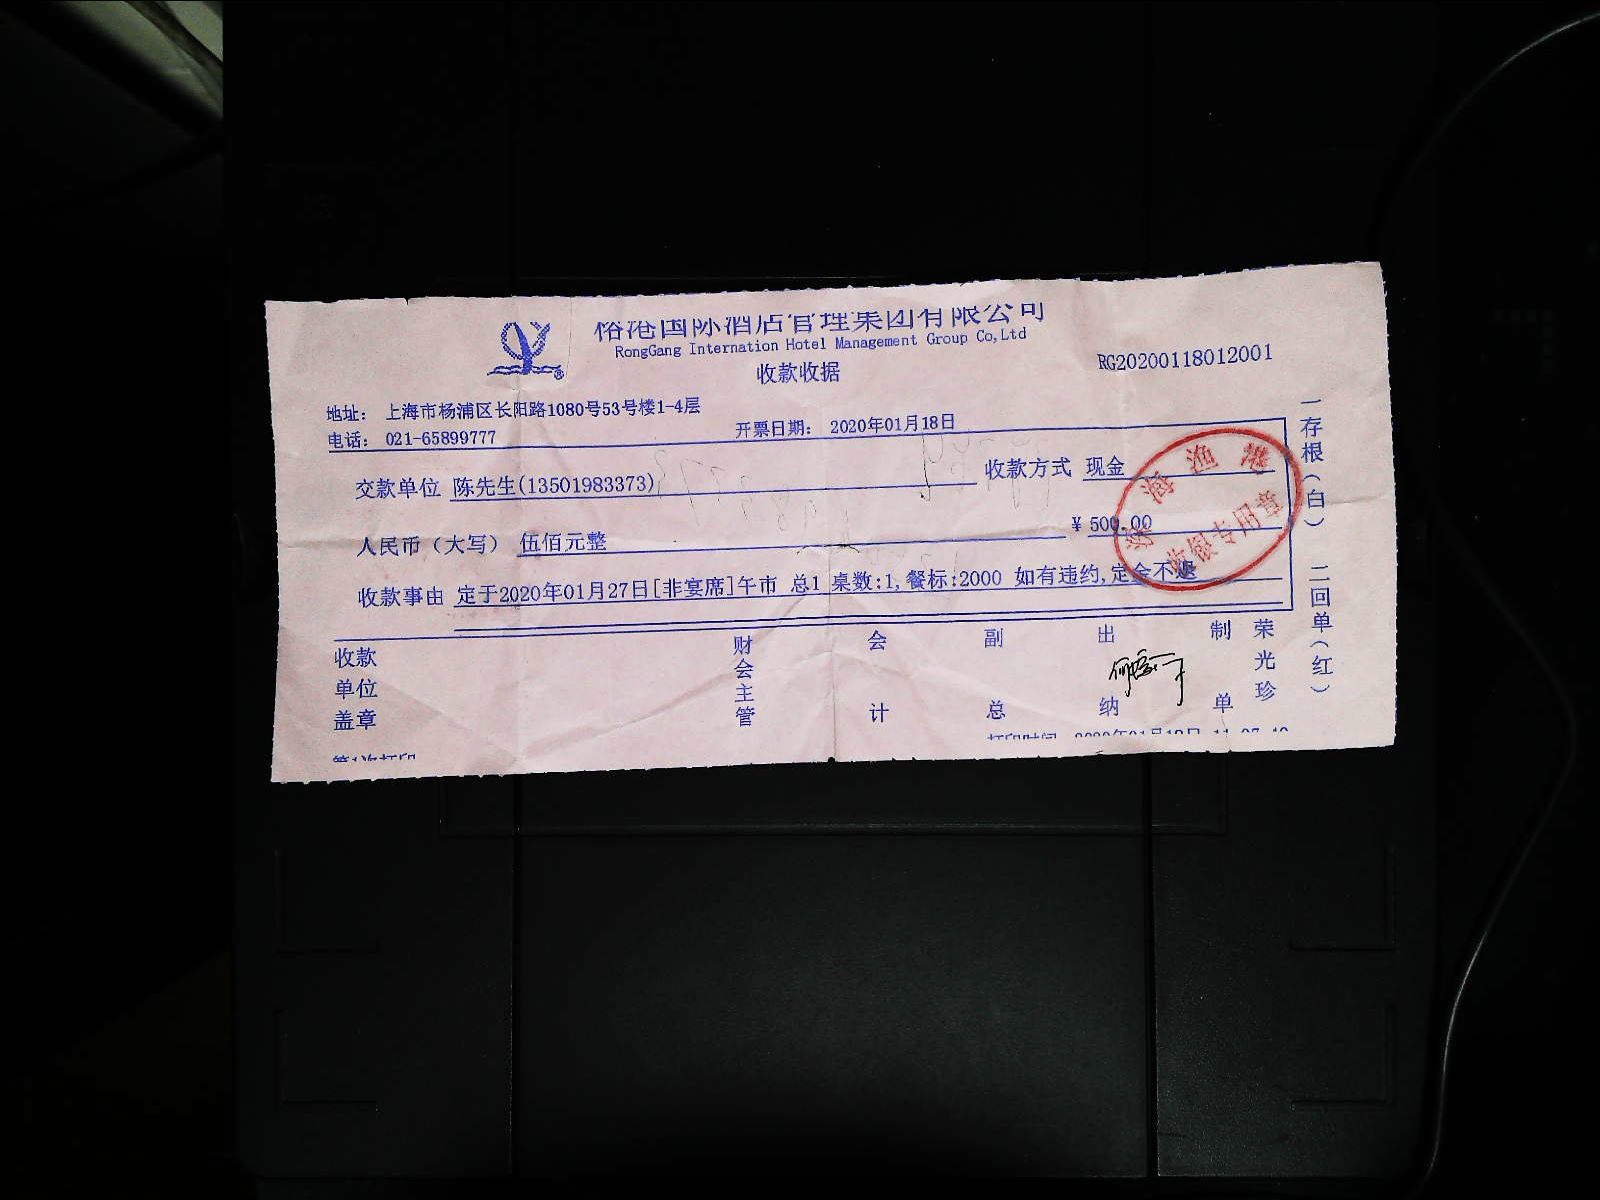 国际酒店管理集团有限公司
RongGang Internation Hotel Management Group Co,Ltd
收款收据
RG20200118012001
地址： 上海市杨浦区长阳路1080号53号楼1-4层
电话： 021-65899777
开票日期： 2020年01月18日
交款单位 陈先生(13501983373)
收款方式 现金
人民币（大写） 伍佰元整
¥ 500.00
收款事由 定于2020年01月27日[非宴席]午市 总1 桌数:1,餐标:2000 如有违约,定金不退
海渔港
收银专用章
一存根（白） 二回单（红）
收款单位盖章
财会主管
会计
副总
出纳
制单
荣光珍
第1次打印
打印时间 2020年01月18日